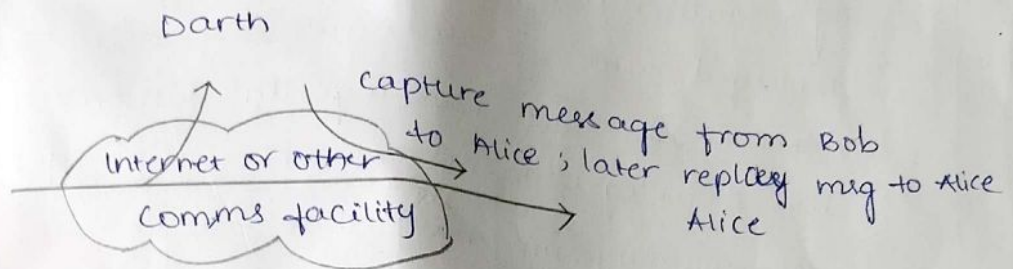 Darth
capture message from Bob
to Alice ; later replay msg to Alice
Internet or other
comms facility
Alice